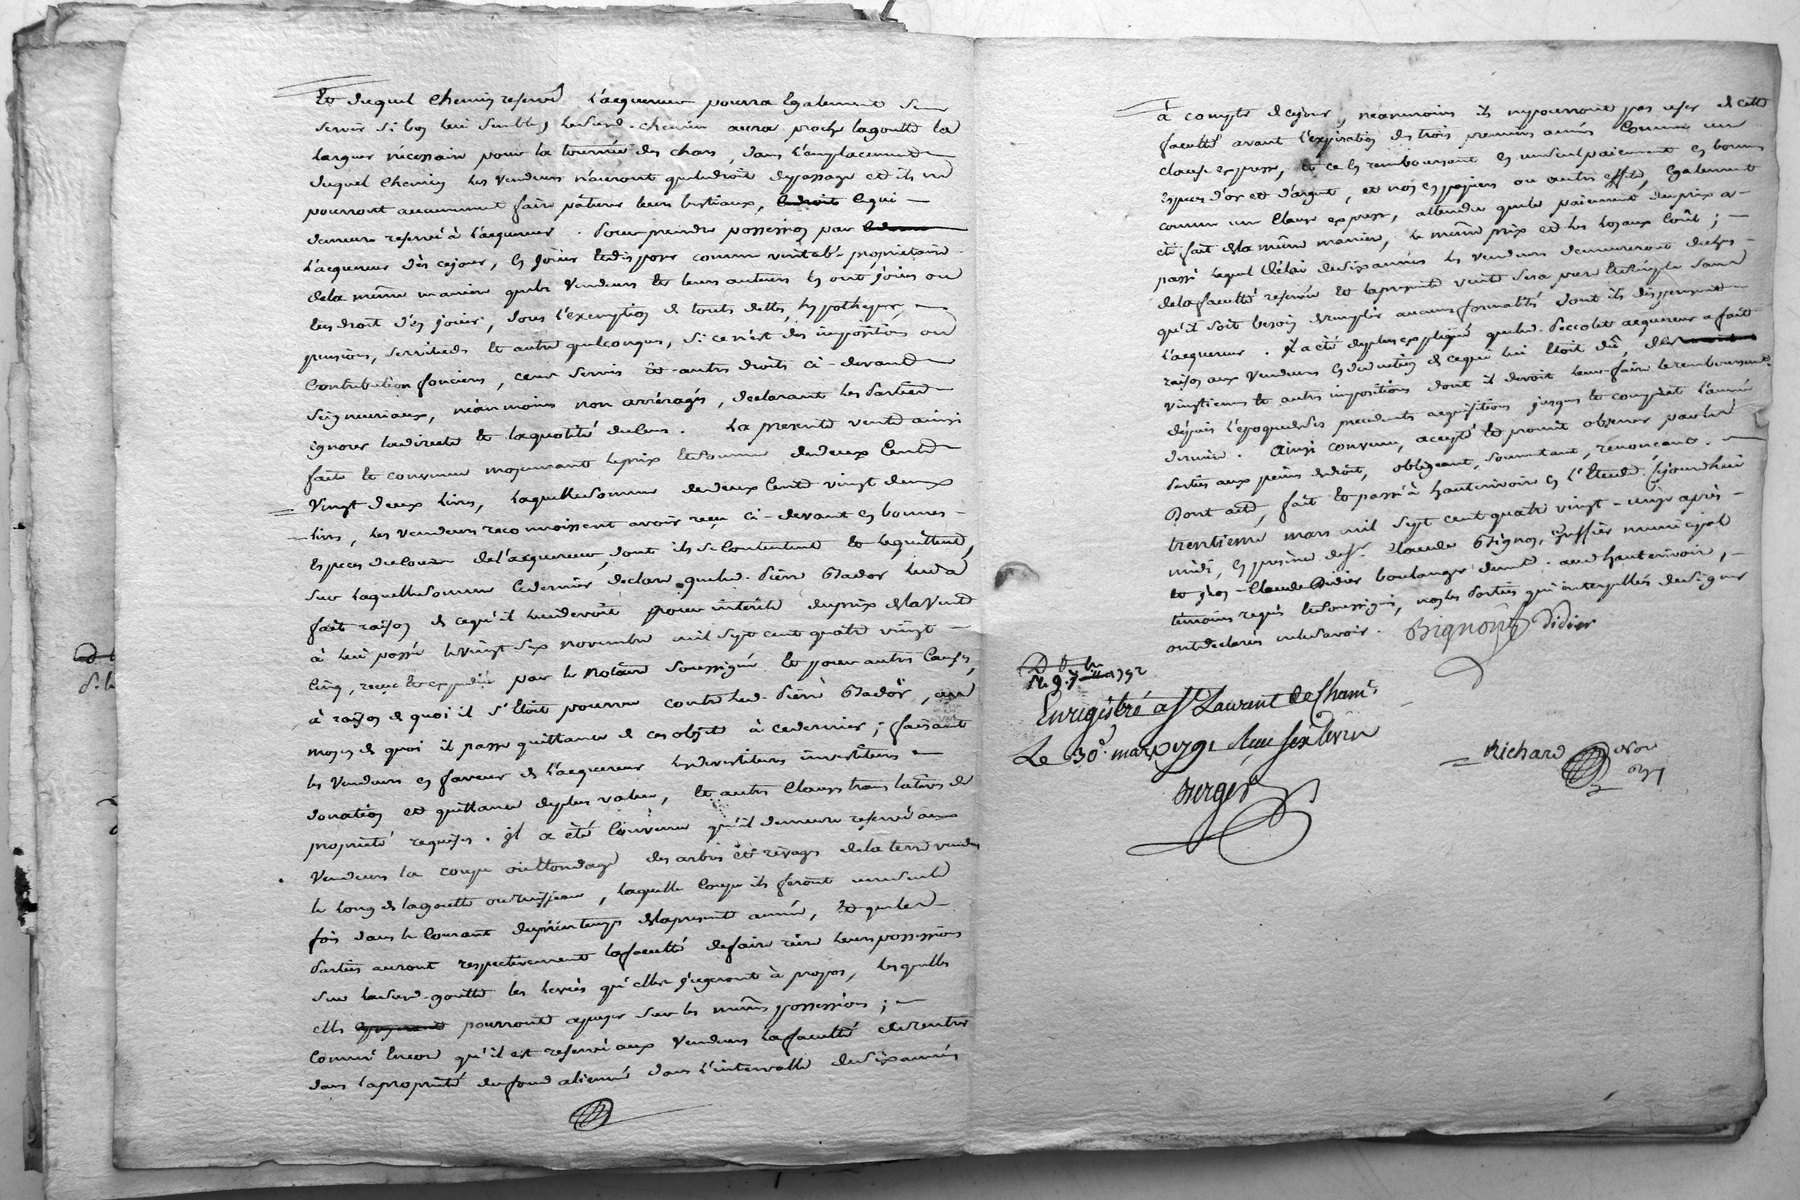 Et duquel chemin reservé l'acquereur pourra Egalement se
servir si bon lui semble, lesusd. chemin aura proche lagoutte la
largeur nécessaire pour la tournée des chars, dans l'emplacement
duquel chemin les Vendeurs n'auront queledroit depassage et ils ne
pourront aucunement faire pâturer leurs bestiaux, cequi
demeure reservé à l'acquereur. Pour prendre possession par
l'acquereur dès cejour, En joüir Etdisposer comme véritable proprietaire
dela même maniere queles Vendeurs Et leurs auteurs En ont joüi ou
Eu droit d'En joüir, sous l'exemption de touts dettes, hypotheques,
pensions, servitudes Et autre quelconques, si cen'est des impositions ou
Contribution foncieres, cens servis Et autres droits ci-devant
seigneuriaux, néanmoins non arréragés, declarant les Parties
ignorer ladirecte Et laquotité ducens. La presente vente ainsi
faite Et convenue moyennant leprix Etsomme dedeux Cents
Vingt deux livres, laquellesomme dedeux Cents vingt deux
livres, les Vendeurs reconnoissent avoir reçu ci-devant En bonnes
Especes ducours del'acquereur, dont ils se Contentent Et lequittent,
sur laquellesomme cedernier declare queled. Pierre Gtador luid a
fait raison de cequ'il luidevoit pour intérêts duprix delaVente
à lui passée levingt six novembre mil sept cent quatre vingt
Cinq, reçue Et expediée par le Notaire soussigné Et pour autres Causes,
à raison de quoi il s'Etoit pourvu contre led. Pierre Gtador, au
moyen de quoi il passe quittance de ces objets à cedernier; faisant
les Vendeurs en faveur de l'acquereur les devestitures investitures
donation et quittance deplus value, Et autres Clauses translatives de
proprieté requises. il a été Convenu qu'il demeure reservé aux
Vendeurs la coupe ouEttondage des arbres Et rivages dela terre vendue
le long de lagoutte ouruisseau, laquelle Coupe ils feront uneseule
fois dans le Courant duprintemps delapresente année, Et queles
Parties auront respectivement lafaculté defaire sur leurs possessions
sur lesusd. goutte les levées qu'elles jugeront à propos, lesquelles
elles pourront apuyer sur les mêmes possessions;
Comme Encore qu'il est reservé aux Vendeurs lafaculté derentrer
dans laproprieté dufond aliené dans l'intervalle desixannées
à compter decejour, néanmoins ils nepourront pas user de cette
faculté avant l'expiration des trois premieres années Comme une
clause expresse, Et ce En remboursant En unseulpaiement En bonnes
Especes d'or et d'argent, et non En papiers ou autres effets, Egalement
comme une Clause expresse, attendu quele paiement duprix a
été fait dela même maniere, le même prix et les loyaux Coûts;
passé lequel délai desixannées les Vendeurs demeureront dechus
delafaculté reservée Et lapresente vente sera pure Etsimple sans
qu'il soit besoin deremplir aucunes formalités dont ils dispensent
l'acquereur. Il a été deplus expliqué queled. Peccolet acquereur a fait
raison aux Vendeurs En deduction de cequi lui Etoit dû des
vingtiemes Et autres impositions dont il devoit leur faire leremboursement
depuis l'Epoque deses precedents acquisitions jusques Et compris l'année
derniere. Ainsi convenu, accepté Et promit observer par les
Parties aux peines dedroit, obligeant, soumettant, renonçant.
Dont acte, fait Et passé à hauterivoire En l'Etude, cejourd'hui
trentieme mars mil sept cent quatre vingt-onze après
midi, En presence desr. Claude Bignon, officier municipal
Et sr. Claude Didier boulanger demt. aud hauterivoire,
témoins requis Etsoussignés, nonles Parties qui interpellées designer
ontdeclarés nelesavoir. Bignony Didier
le 9. Juillet 1792
Enregistré a St Laurent de Cham.
Le 30e. mars 1791
Burger
Richard